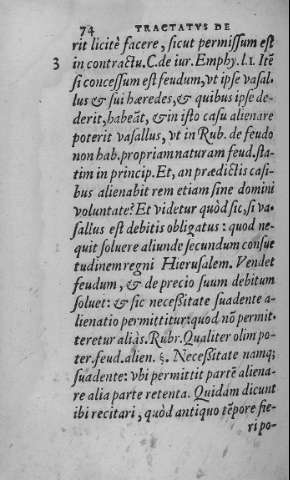 74 TRACTATVS DE
rit licitè facere, sicut permissum est
3 in contractu. C. de iur. Emphy. l. 1. Itē
si concessum est feudum, vt ipse vasal-
lus & sui hæredes, & quibus ipse de-
derit, habeāt, & in isto casu alienare
poterit vasallus, vt in Rub. de feudo
non hab. propriam naturam feud. sta-
tim in princip. Et, an prædictis casi-
bus alienabit rem etiam sine domini
voluntate? Et videtur quòd sic, si va-
sallus est debitis obligatus: quod ne-
quit soluere aliunde secundum consue
tudinem regni Hierusalem. Vendet
feudum, & de precio suum debitum
soluet: & sic necessitate suadente a-
lienatio permittitur: quod nō permit-
teretur aliàs. Rubr. Qualiter olim po-
ter. feud. alien. §. Necessitate namq;
suadente: vbi permittit partē aliena-
re alia parte retenta. Quidam dicunt
ibi recitari, quòd antiquo tēpore fie-
ri po-